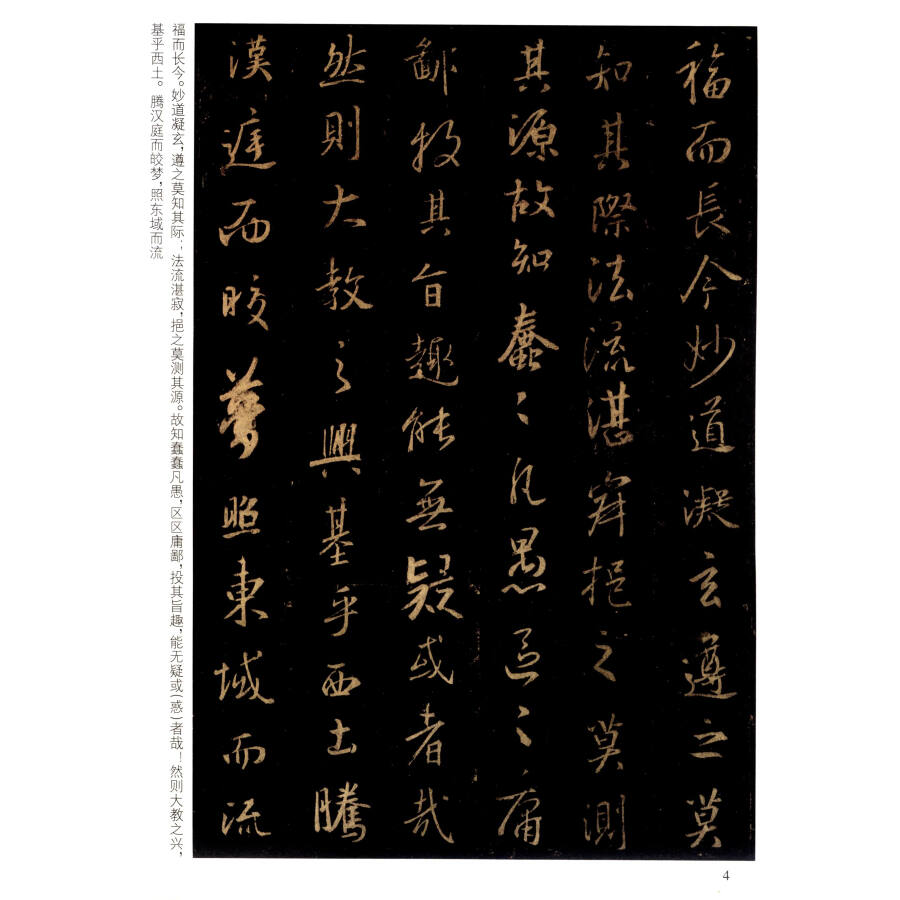 福而長今妙道凝玄遵之莫
知其際法流湛寂挹之莫測
其源故知蠢〻凡愚區〻庸
鄙投其旨趣能無疑或者哉
然則大教之興基乎西土騰
漢庭而皎夢照東域而流
福而长今。妙道凝玄，遵之莫知其际；法流湛寂，挹之莫测其源。故知蠢蠢凡愚，区区庸鄙，投其旨趣，能无疑或(惑)者哉！然则大教之兴，
基乎西土。腾汉庭而皎梦，照东域而流
4